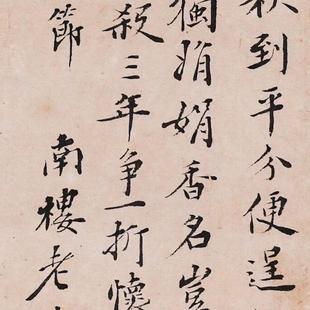 秋到平分便逞
獨娟娟香名豈
殺三年争一折懷
節
南樓老